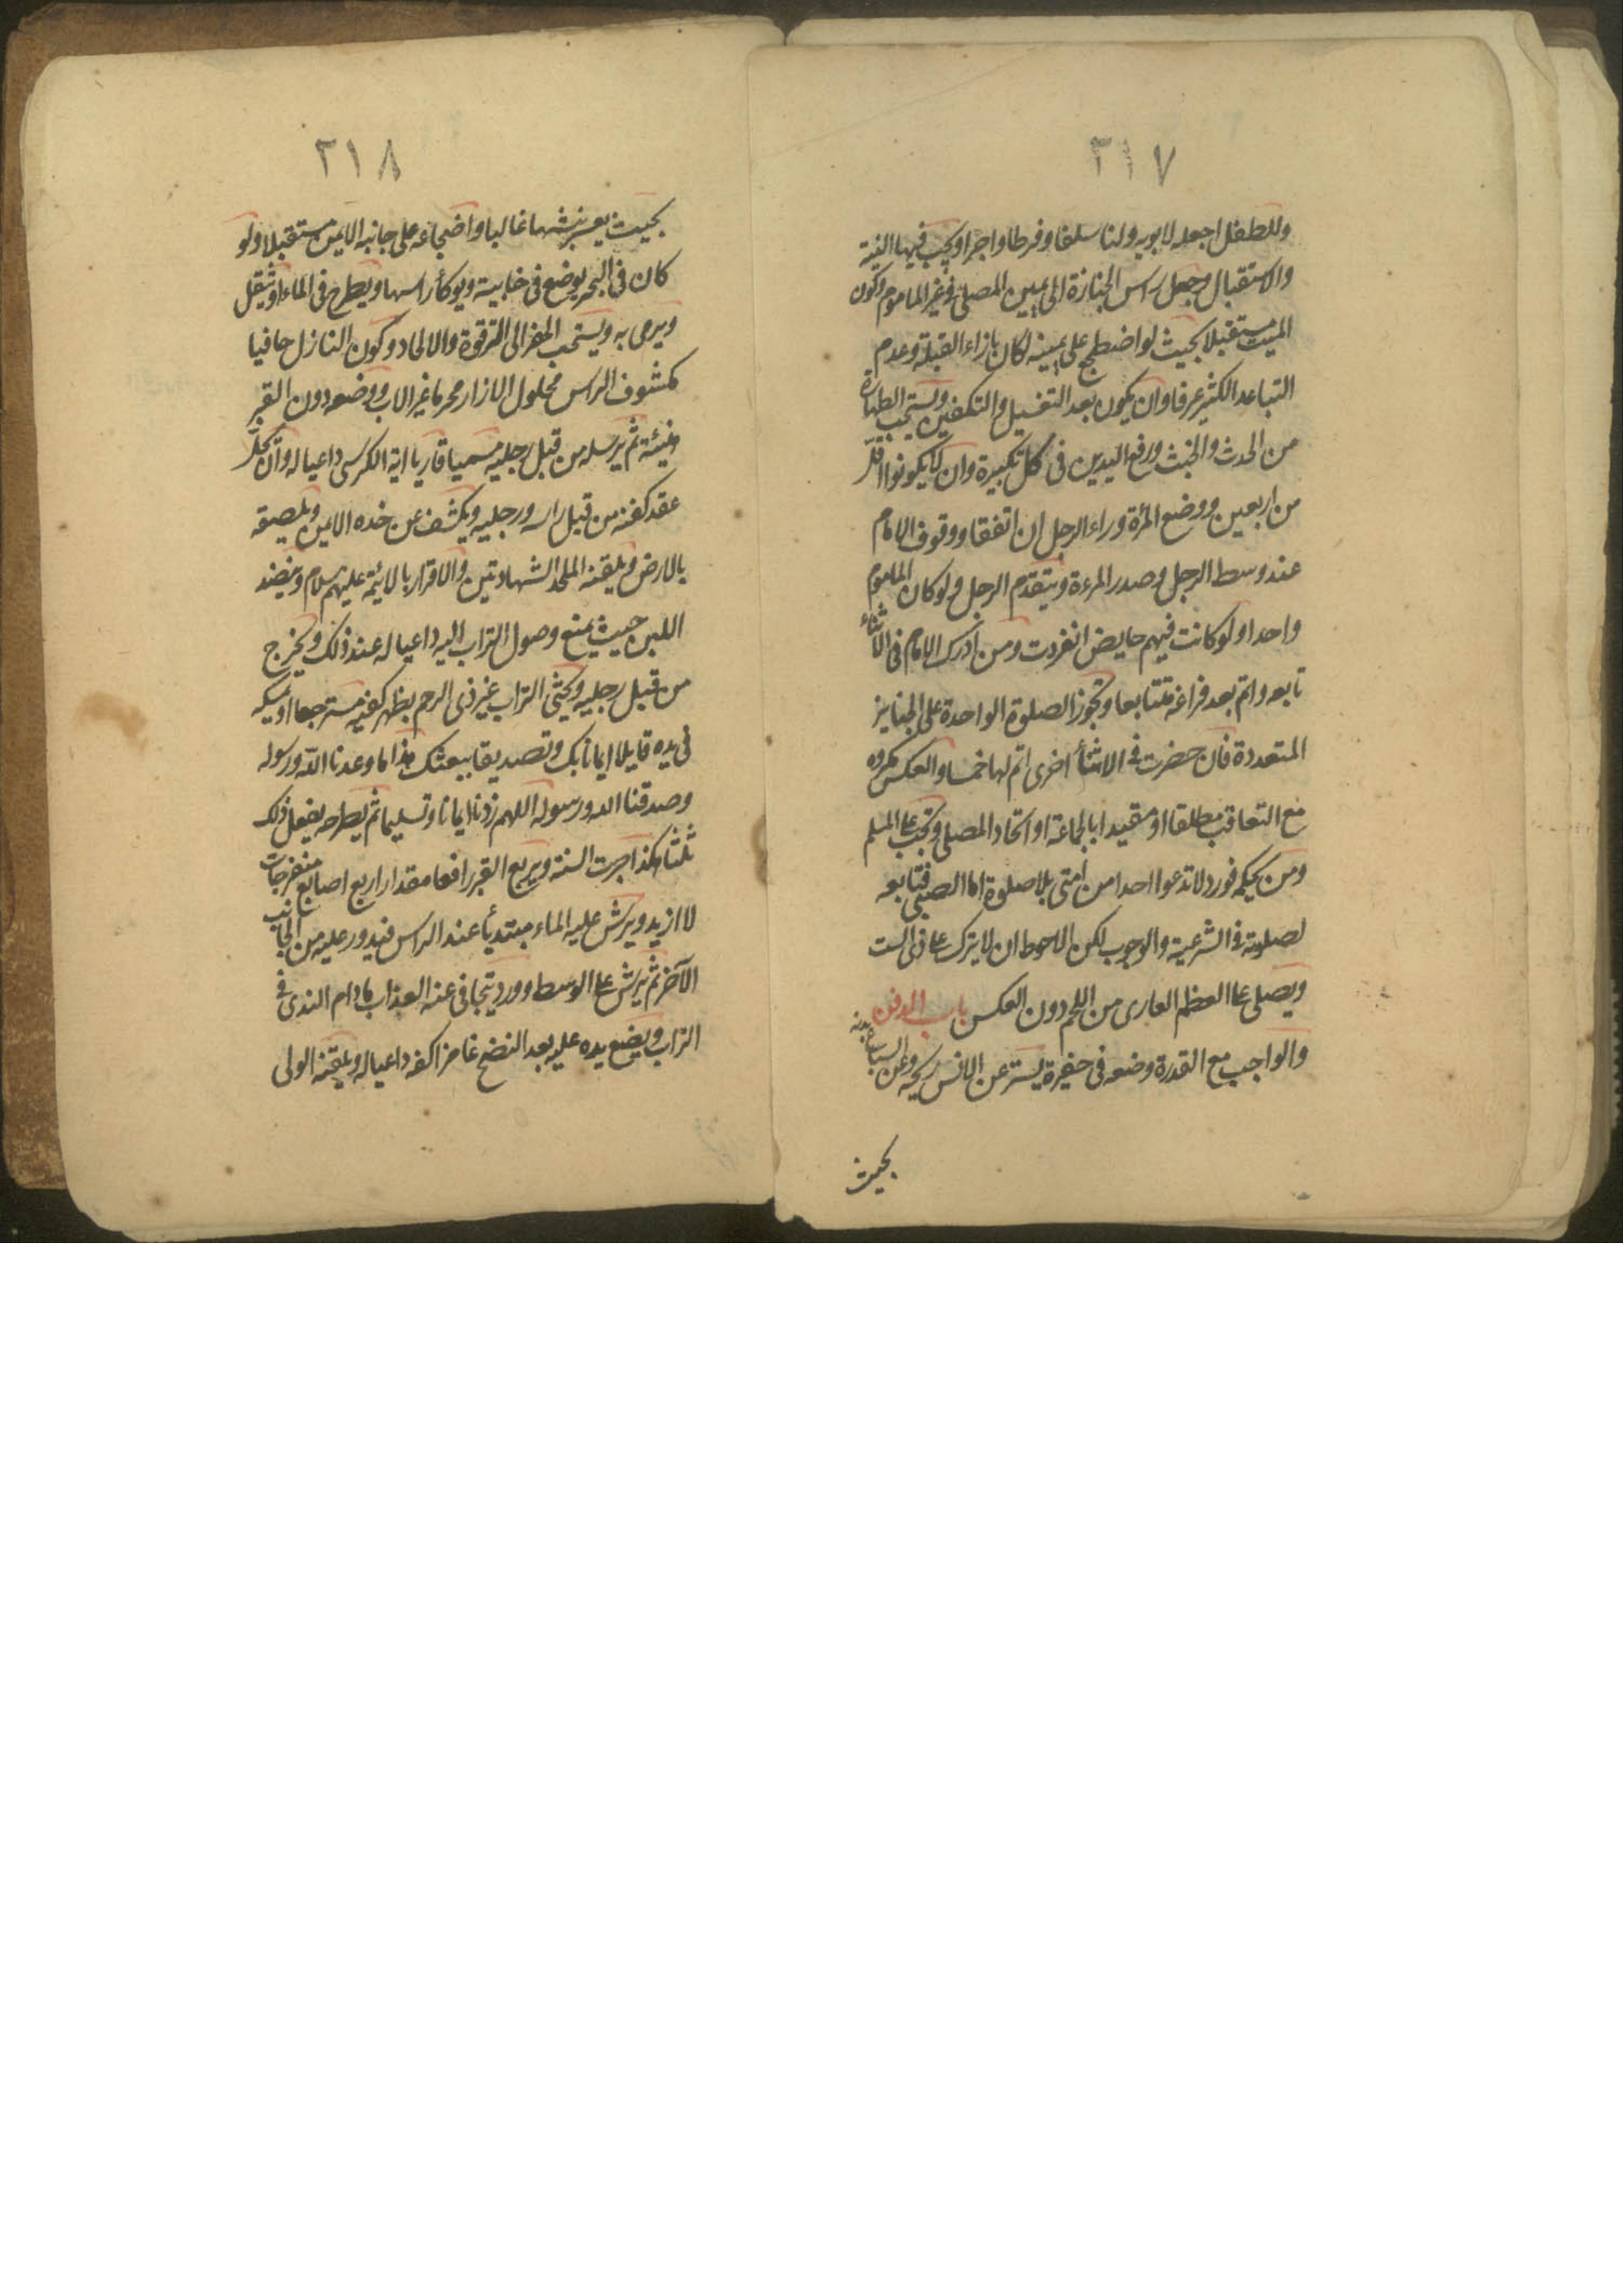 ٣١٧
وللطفل اجعله لابويه ولنا سلفا وفرطا واجرا ويجب فيها النية
والاستقبال وجعل راس الجنازة الى يمين المصلى فى غير الماموم وكون
الميت مستقبلا بحيث لو اضطجع على يمينه لكان بازاء القبلة وعدم
التباعد الكثير عرفا وان يكون بعد التغسيل والتكفين ويستحب الطهارة
من الحدث والخبث ورفع اليدين فى كل تكبيرة وان لا يكونوا اقل
من اربعين ووضع المرأة وراء الرجل ان اتفقا ووقوف الامام
عند وسط الرجل وصدر المرءة ويتقدم الرجل ولو كان الماموم
واحدا ولو كانت فيهم حايض انفردت ومن ادرك الامام فى الاثناء
تابعه واتم بعد فراغه متتابعا وتجوز الصلوة الواحدة على الجنايز
المتعددة فان حضرت فى الاثنأ اخرى اتم لها خمسا والعكس مكروه
مع التعاقب مطلقا او مقيدا بالجماعة او اتحاد المصلى وتجب على المسلم
ومن بحكمه فورد لا تدعوا احدا من امتى بلا صلوة اما الصبى فتابعه
لصلوته فى الشرعية والوجوب لكن الاحوط ان لا يترك على ذى الست
ويصلى على العظم العارى من اللحم دون العكس باب الدفن
والواجب مع القدرة وضعه فى حفيرة يستر عن الانس ريحه وعن السباع بدنه
بحيث
٣١٨
بحيث يعسر نبشها غالبا واضجاعه على جانبه الايمن مستقبلا ولو
كان فى البحر يوضع فى خابية ويوكأ راسها ويطرح فى الماء او يثقل
ويرمى به ويستحب الحفر الى الترقوة والالحاد وكون النازل حافيا
مكشوف الراس محلول الازار محرما غير الاب ووضعه دون القبر
هنيئة ثم يرسله من قبل رجليه مسميا قاريا اية الكرسى داعيا له وان يحل
عقد كفنه من قبل راسه ورجليه ويكشف عن خده الايمن ويلصقه
بالارض ويلقنه الملحد الشهادتين والاقرار بالائمة عليهم سلام وينضد
اللبن حيث يمنع وصول التراب اليه داعيا له عند ذلك ويخرج
من قبل رجليه ويحثى التراب غير ذى الرحم بظهر كفيه مسترجعا او يمسكه
فى يده قايلا ايمانا بك وتصديقا ببعثك هذا ما وعدنا الله ورسوله
وصدقنا الله ورسوله اللهم زدنا ايمانا وتسليما ثم يطرحه يفعل ذلك
ثلثا هكذا جرت السنة ويربع القبر رافعا مقدار اربع اصابع منفرجات
لا ازيد ويرش عليه الماء مبتديأ عند الراس فيدور عليه من الجانب
الآخر ثم يرش على الوسط وورد يتجافى عنه العذاب مادام الندى فى
التراب ويضع يده عليه بعد النضح غامزا كفه داعيا له ويلقنه الولى